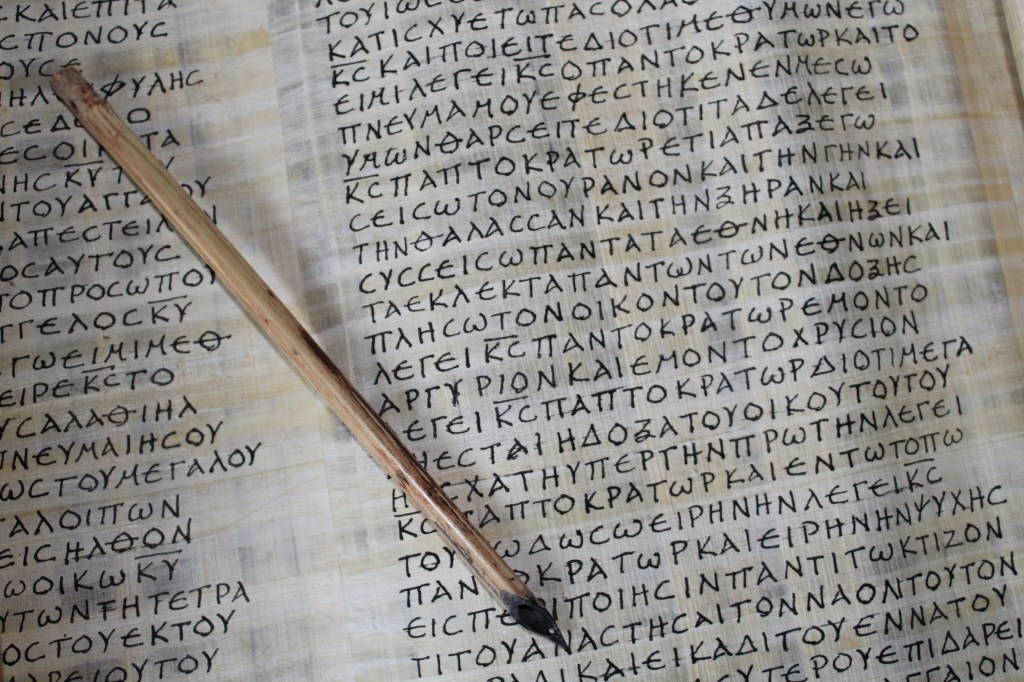 CΚΑΙΕΠΙΤΑ
CΠΟΝΟΥC
ΟΥCΕ
ΦΥΛΗC
ΗCΚΥ
ΙΤΟΥΑΓΓΑ
ΑΠΕCΤΕΙΛ
ΟCΑΥΤΟΥC
ΤΟΠΡΟCΩΠΟΥ
ΓΓΕΛΟCΚΥ
ΓΩΕΙΜΙΜΕΘ
ΕΙΡΕΚCΤΟ
ΥCΑΛΑΘΙΗΛ
ΠΝΕΥΜΑΙΗCΟΥ
ΩCΤΟΥΜΕΓΑΛΟΥ
ΤΑΛΟΙΠΩΝ
ΕΙCΗΛΘΟΝ
ΩΟΙΚΩΚΥ
ΥΤΩΝΤΗΤΕΤΡΑ
ΟCΤΟΥΕΚΤΟΥ
ΑΡΕΙΟΥΤΟΥ
ΚΑΤΙCΧΥΕΤΩΠΑCΟΛΑ
ΚCΚΑΙΠΟΙΕΙΤΕΔΙΟΤΙΜΕΘΥΜΩΝΕΓΩ
ΕΙΜΙΛΕΓΕΙΚCΟΠΑΝΤΟΚΡΑΤΩΡΚΑΙΤΟ
ΠΝΕΥΜΑΜΟΥΕΦΕCΤΗΚΕΝΕΝΜΕCΩ
ΥΜΩΝΘΑΡCΕΙΤΕΔΙΟΤΙΤΑΔΕΛΕΓΕΙ
ΚCΠΑΠΤΟΚΡΑΤΩΡΕΤΙΑΠΑΞΕΓΩ
CΕΙCΩΤΟΝΟΥΡΑΝΟΝΚΑΙΤΗΝΓΗΝΚΑΙ
ΤΗΝΘΑΛΑCCΑΝΚΑΙΤΗΝΞΗΡΑΝΚΑΙ
CΥCCΕΙCΩΠΑΝΤΑΤΑΕΘΝΗΚΑΙΗΞΕΙ
ΤΑΕΚΛΕΚΤΑΠΑΝΤΩΝΤΩΝΕΘΝΩΝΚΑΙ
ΠΛΗCΩΤΟΝΟΙΚΟΝΤΟΥΤΟΝΔΟΞΗC
ΛΕΓΕΙΚCΠΑΝΤΟΚΡΑΤΩΡΕΜΟΝΤΟ
ΑΡΓΥΡΙΟΝΚΑΙΕΜΟΝΤΟΧΡΥCΙΟΝ
ΕΓΕΙΚCΠΑΠΤΟΚΡΑΤΩΡΔΙΟΤΙΜΕΓΑ
ΗΕCΤΑΙΗΔΟΞΑΤΟΥΟΙΚΟΥΤΟΥΤΟΥ
Η CΧΑΤΗΥΠΕΡΤΗΝΠΡΩΤΗΝΛΕΓΕΙ
ΚC ΑΠΤΟΚΡΑΤΩΡΚΑΙΕΝΤΩΤΟΠΩ
ΤΟΥ ΩΔΩCΩΕΙΡΗΝΗΝΛΕΓΕΙΚC
ΠΑΝ ΟΚΡΑΤΩΡΚΑΙΕΙΡΗΝΗΝΨΥΧΗC
ΕΙCΠΕ ΙΠΟΙΗCΙΝΠΑΝΤΙΤΩΚΤΙΖΟΝ
ΤΙΤΟΥΑΝΑCΤΗCΑΙΤΟΝΝΑΟΝΤΟΥΤΟΝ
ΚΑΙΕΙΚΑΔΙΤΟΥΕΝΝΑΤΟΥ
ΥΤΕΡΟΥΕΠΙΔΑΡΕΙ
ΓΑΙΟΝ